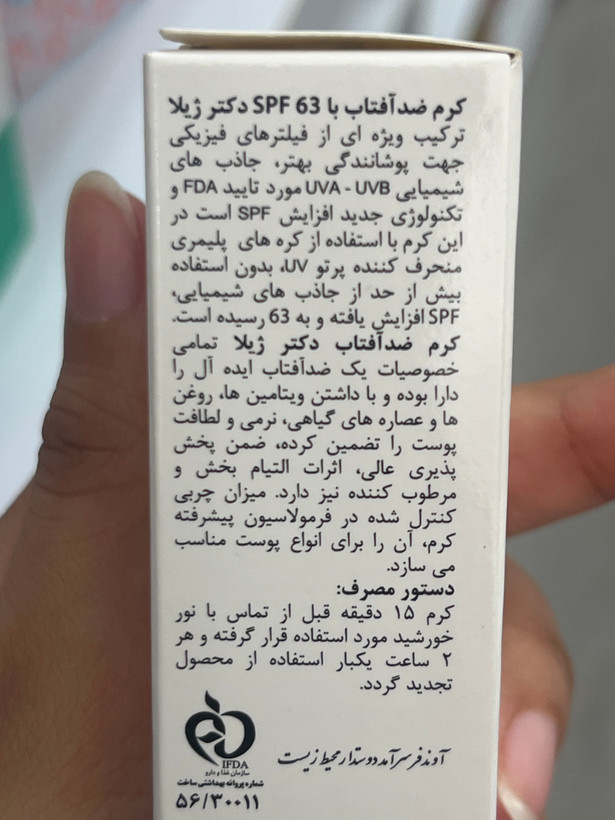 کرم ضدآفتاب با SPF 63 دکتر ژیلا
ترکیب ویژه ای از فیلترهای فیزیکی
جهت پوشانندگی بهتر، جاذب های
شیمیایی UVA - UVB مورد تایید FDA و
تکنولوژی جدید افزایش SPF است در
این کرم با استفاده از کره های پلیمری
منحرف کننده پرتو UV، بدون استفاده
بیش از حد از جاذب های شیمیایی،
SPF افزایش یافته و به 63 رسیده است.
کرم ضدآفتاب دکتر ژیلا تمامی
خصوصیات یک ضدآفتاب ایده آل را
دارا بوده و با داشتن ویتامین ها، روغن
ها و عصاره های گیاهی، نرمی و لطافت
پوست را تضمین کرده، ضمن پخش
پذیری عالی، اثرات التیام بخش و
مرطوب کننده نیز دارد. میزان چربی
کنترل شده در فرمولاسیون پیشرفته
کرم، آن را برای انواع پوست مناسب
می سازد.
دستور مصرف:
کرم ۱۵ دقیقه قبل از تماس با نور
خورشید مورد استفاده قرار گرفته و هر
۲ ساعت یکبار استفاده از محصول
تجدید گردد.
آوندفر سرآمد دوستدار محیط زیست
IFDA
سازمان غذا و دارو
شماره پروانه بهداشتی ساخت
۵۶/۳۰۰۱۱